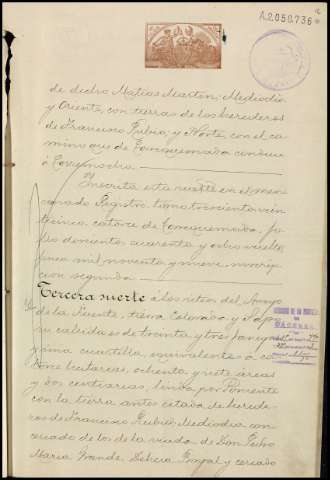 A2.058,736
de dicho Matías Martín; Mediodía
y Oriente, con tierras de los herederos
de Francisco Rubio, y Norte, con el ca-
mino que de Torrequemada conduce
á Torremocha.
Inscrita esta suerte en el mencio-
nado Registro, tomo trescientos vein
ticinco, catorce de Torrequemada, fo-
lio doscientos cuarenta y ocho vuelto,
finca mil noventa y nueve, inscrip-
cion segunda.
Tercera suerte á los sitios del Arroyo
de la Fuente, tierra Colorada y
su cabida es de treinta y tres fanegas y
una cuartilla, equivalente á ca-
torce hectáreas, ochenta y siete áreas
y dos centiáreas, linda por Poniente
con la tierra antes citada de herede-
ros de Francisco Rubio; Mediodía con
cercado de los de la viuda de Don Pedro
María Grande, Dehesa Boyal y cercado